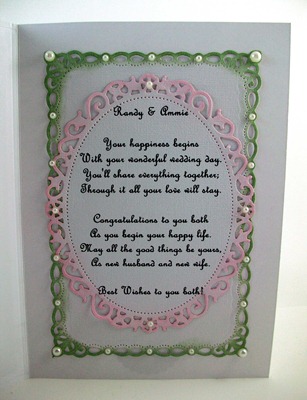 Randy & Ammie
Your happiness begins
With your wonderful wedding day.
You'll share everything together;
Through it all your love will stay.
Congratulations to you both
As you begin your happy life.
May all the good things be yours,
As new husband and new wife.
Best Wishes to you both!